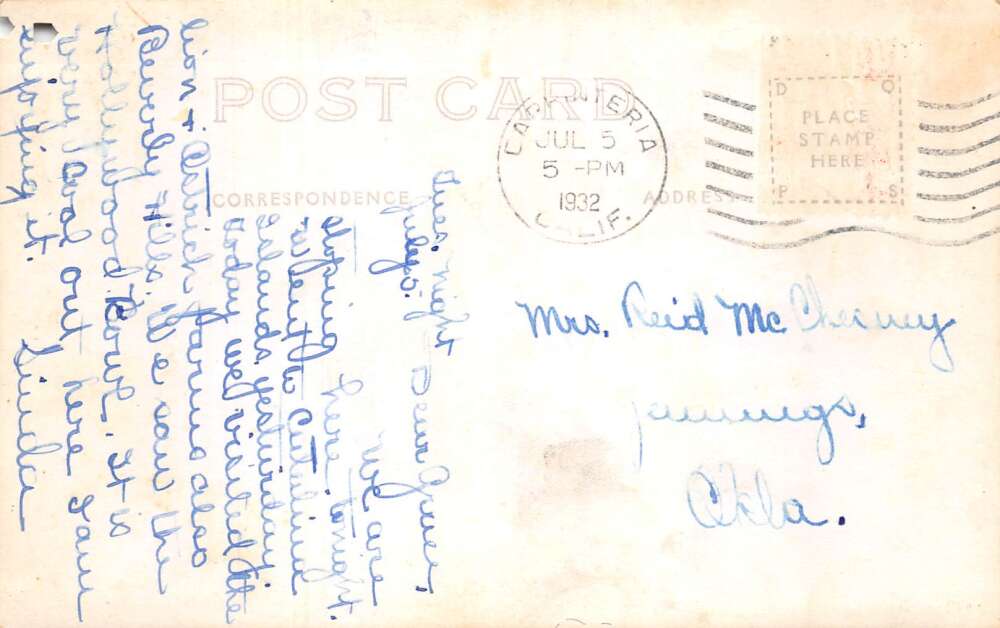 POST CARD
CORRESPONDENCE
ADDRESS
CARPINTERIA
JUL 5
5 -PM
1932
CALIF.
D O
PLACE
STAMP
HERE
P S
Mrs. Reid McChesney
Jennings,
Okla.
Tues. night
July 5.
Dear Grace,
We are
stoping here tonight.
Went to Catalina
Islands yesturday.
today we visited the
lion + Ostrich farms also
Beverly Hills. We saw the
Hollywood Bowl. It is
very cool out here I am
enjoying it.